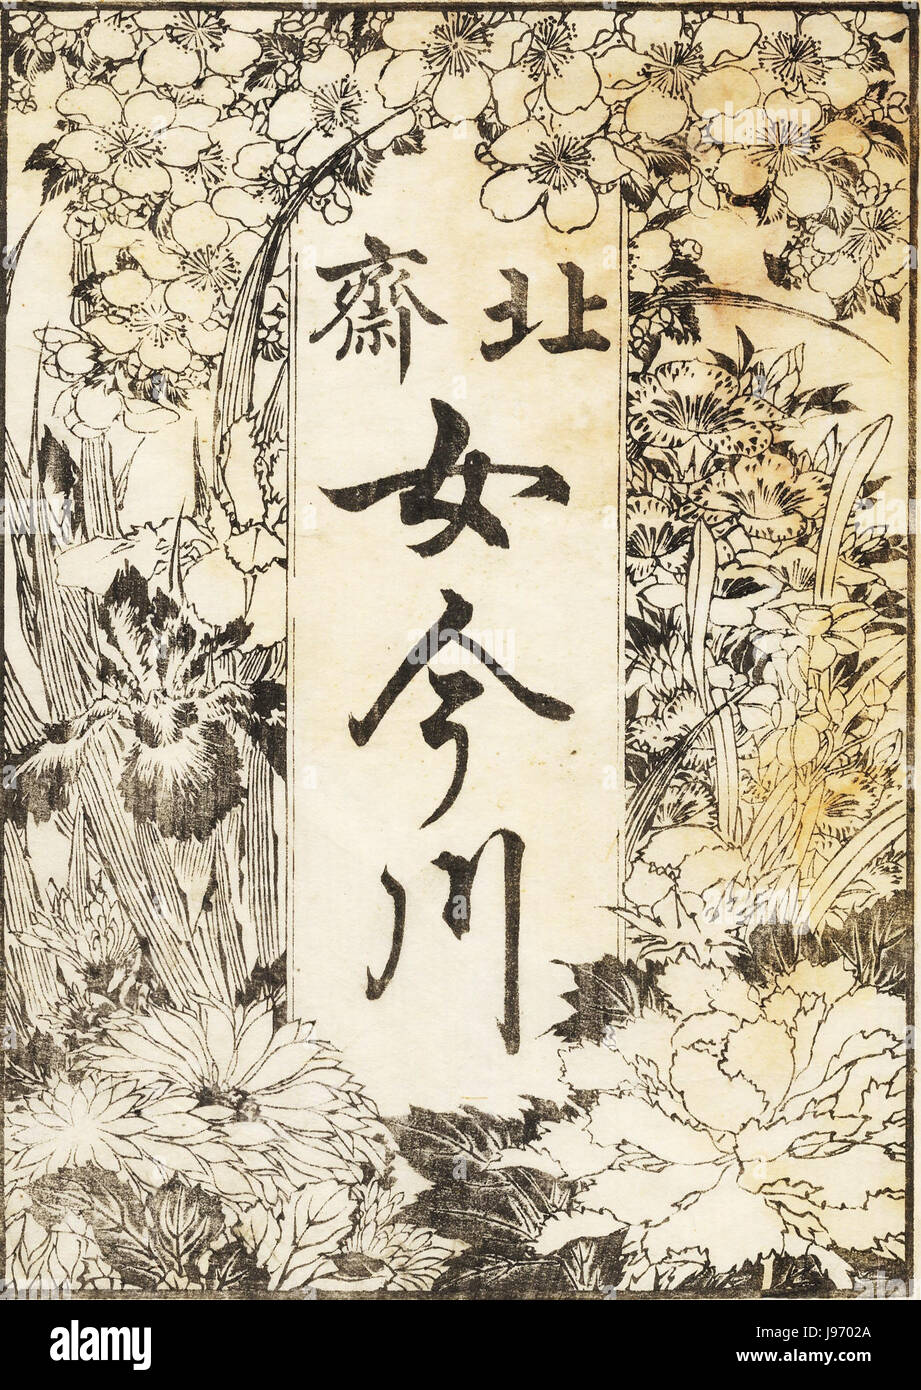 北齋
女今川
alamy
Image ID: J9702A
www.alamy.com